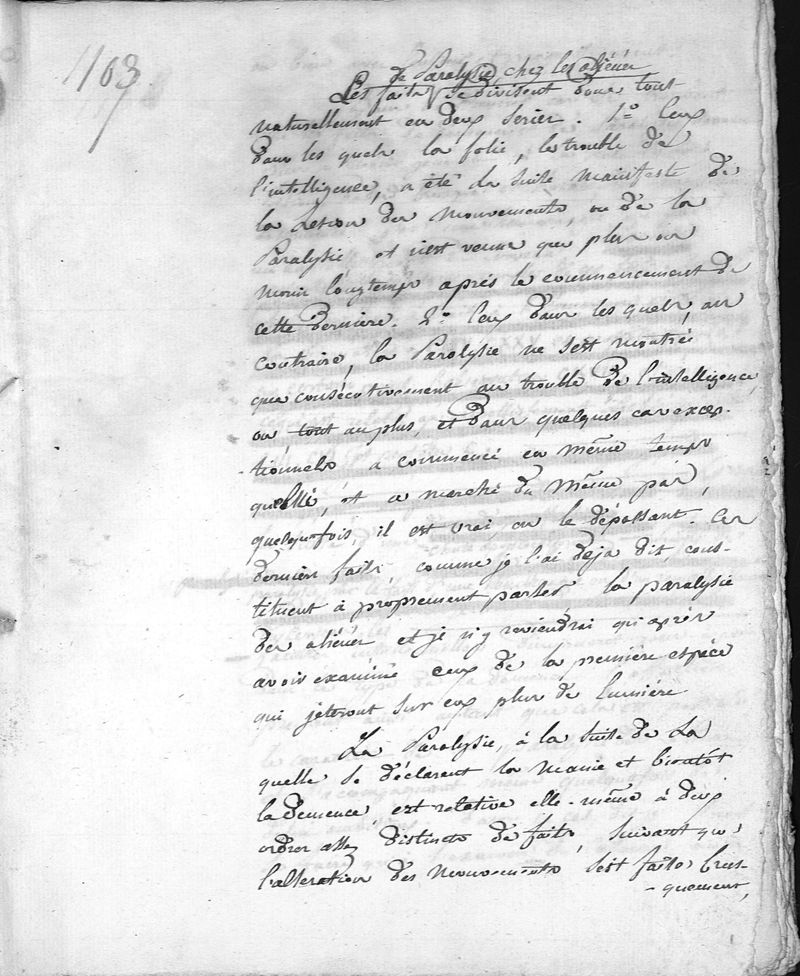 1103
de Paralysie chez les aliénés
Les faits se divisent donc tout
naturellement en deux series. 1o Ceux
dans les quels la folie, le trouble de
l'intelligence, a été la suite manifeste de
la Lesion des mouvements, ou de la
Paralysie et n'est venue que plus ou
moins longtemps après le commencement de
cette derniere. 2o Ceux dans les quels, au
contraire, la Paralysie ne s'est montrée
que consécutivement au trouble de l'intelligence,
ou tout au plus, et dans quelques cas excep-
tionnels a commencé en même temps
qu'elle, et a marché du même pas,
quelquefois, il est vrai, en le dépassant. Ces
derniers faits, comme je l'ai déja dit, cons-
tituent à proprement parler la paralysie
des aliénés et je n'y reviendrai qu'après
avoir examiné ceux de la première espèce
qui jèteront sur eux plus de lumière.
La Paralysie, à la suite de La
quelle se déclarent la manie et bientôt
la demence, est relative elle-même à deux
ordres assez distincts de faits, suivant que
l'alteration des mouvements s'est faite brus-
-quement,